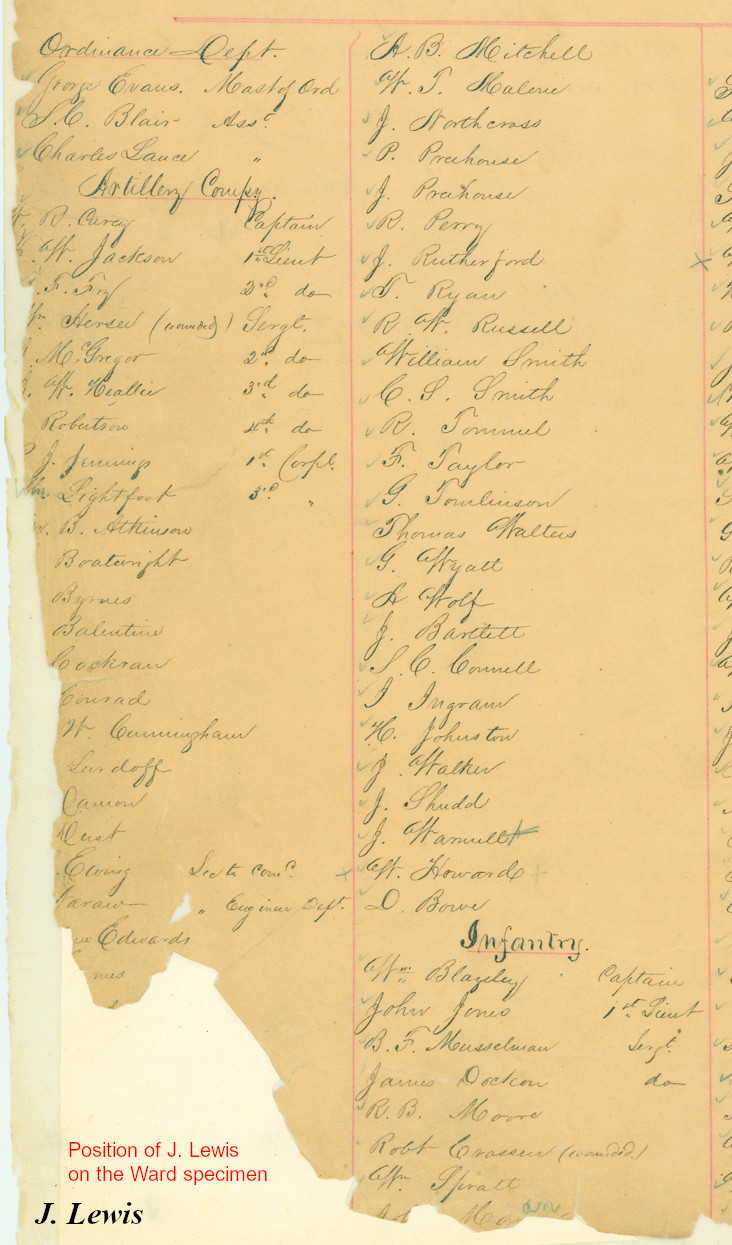 Ordinance Dept.
George Evans. Mast of Ord
S. C. Blair Asst
Charles Lance "
Artillery Compy.
R. Carey Captain
W. Jackson 1st Lieut
F. Fry 2d do
Hersee (wounded) Sergt.
McGregor 2d do
W. Heallie 3rd do
Robertson 4th do
J. Jennings 1st Corpl.
Lightfoot 3d "
B. Atkinson
Boatwright
Byrnes
Balentine
Cockran
Conrad
W. Cunningham
Lurdoff
Camon
Dust
Ewing See to Comd.
" Engineer Dept.
Edwards
A. B. Mitchell
W. T. Malone
J. Northcross
P. Preehouse
J. Preehouse
R. Perry
J. Rutherford
T. Ryan
R. W. Russell
William Smith
C. S. Smith
R. Tommel
F. Taylor
G. Tomlinson
Thomas Walters
G. Wyatt
A Wolf
J. Bartlett
S. C. Connell
J Ingram
H. Johnston
J. Walker
J. Shudd
J. Warmell
W. Howard
D. Bowe
Infantry.
Wm Blazeley Captain
John Jones 1st Lieut
B. F. Musselman Sergt.
James Dockon do
R. B. Moore
Robt Crossen (wounded.)
Wm Spratt
Position of J. Lewis
on the Ward specimen
J. Lewis